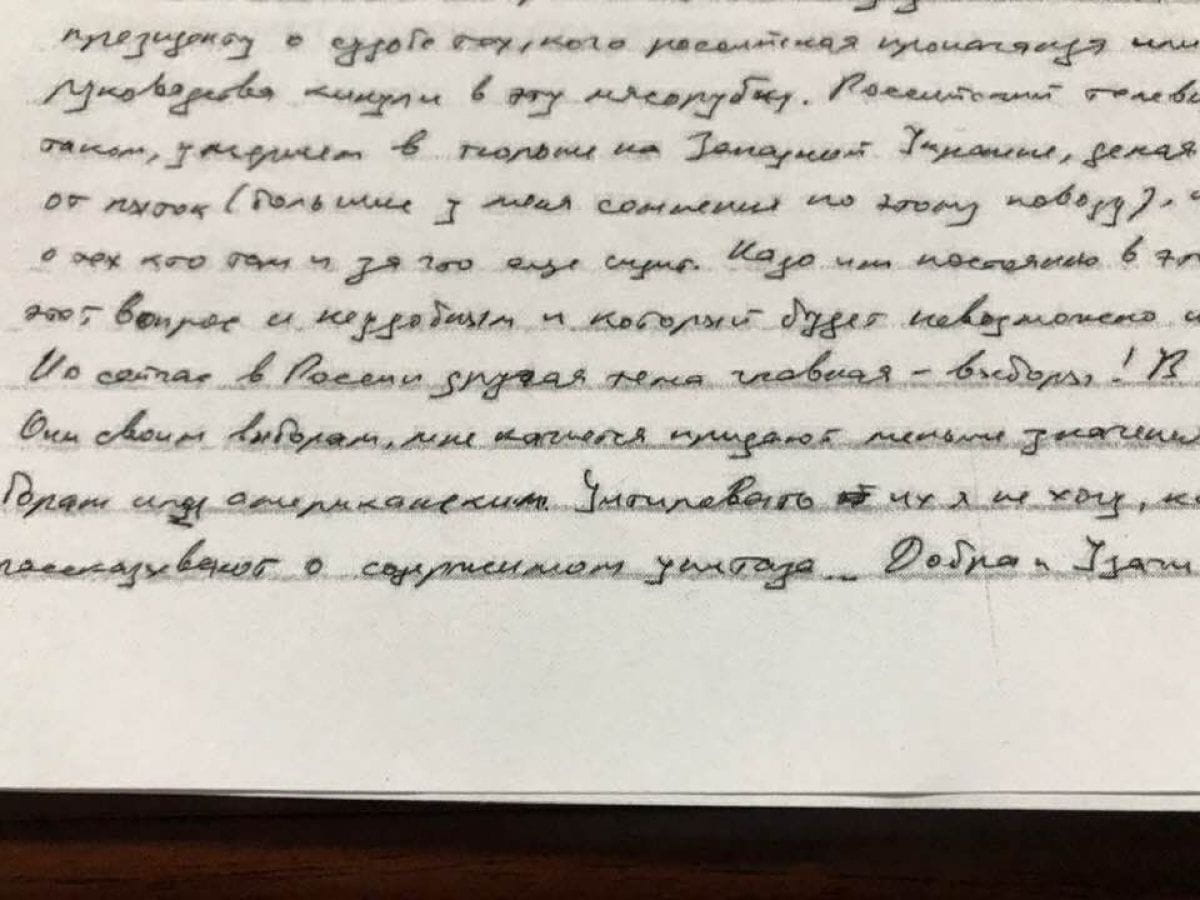 президенту о судьбе тех, кого российская пропаганда или
руководства кинули в эту мясорубку. Российский
умершем в тюрьме на Западной Украине,
от пыток (большие у меня сомнения по этому поводу),
о тех кто там и за что еще сидит. Надо им постоянно в
этот вопрос и неудобным и который будет невозможено
Но сейчас в России другая тема главная - выборы! В
Они своим выборам, мне кажется придают меньше
американским. Цитировать их я не хочу,
рассказывают о содержимом унитаза... Добра и